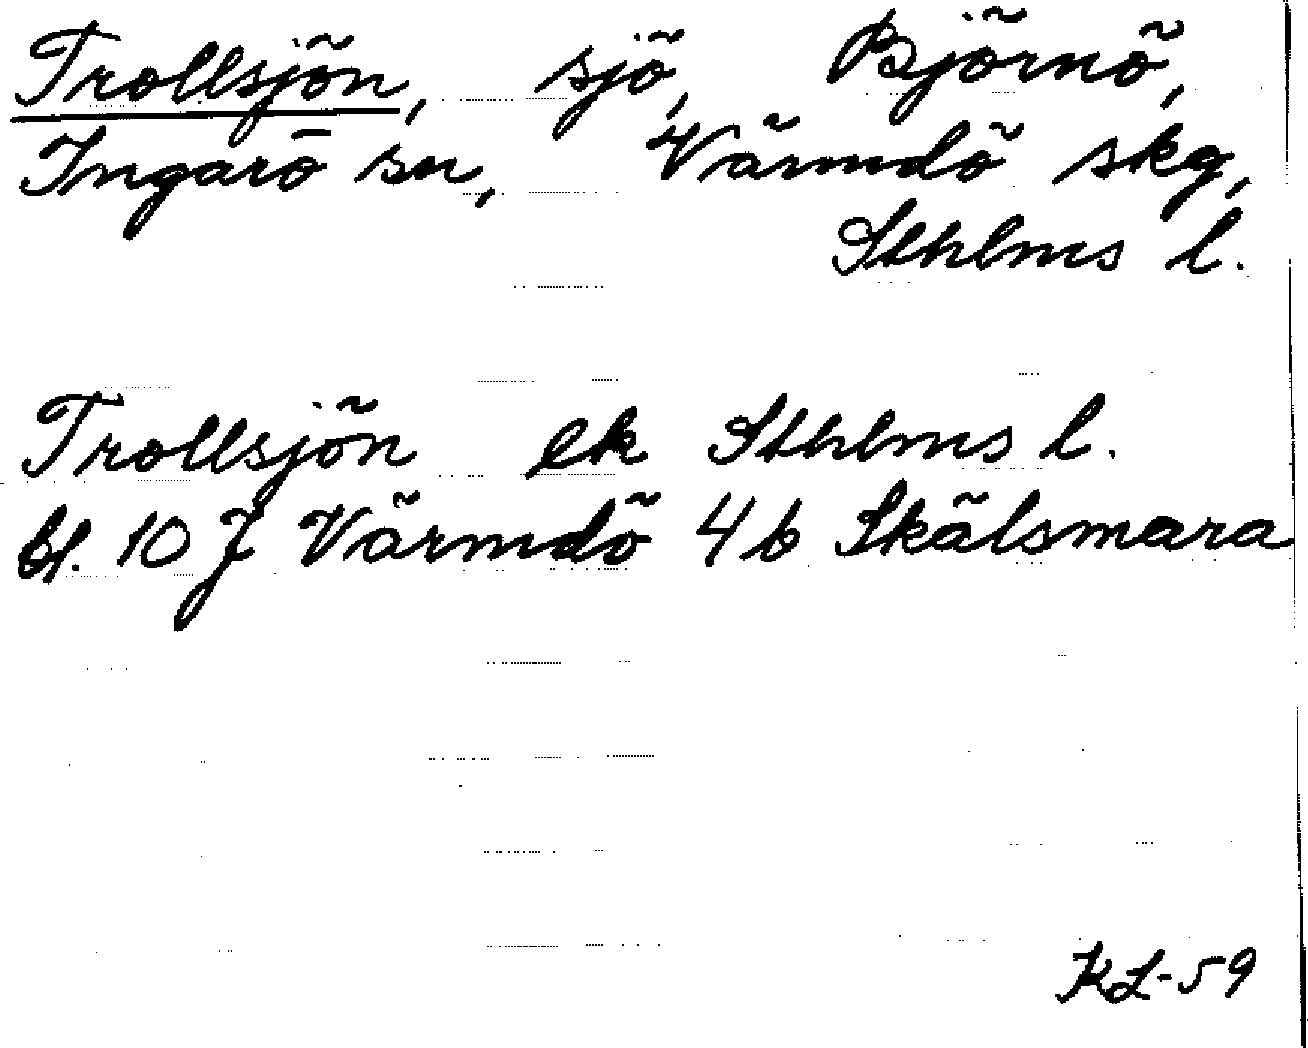 Trollsjön, sjö, Björnö,
Ingarö sn, Värmdö skg,
Sthlms l.
Trollsjön ek Sthlms l.
bl. 10 J Värmdö 4b Skälsmara
KL-59